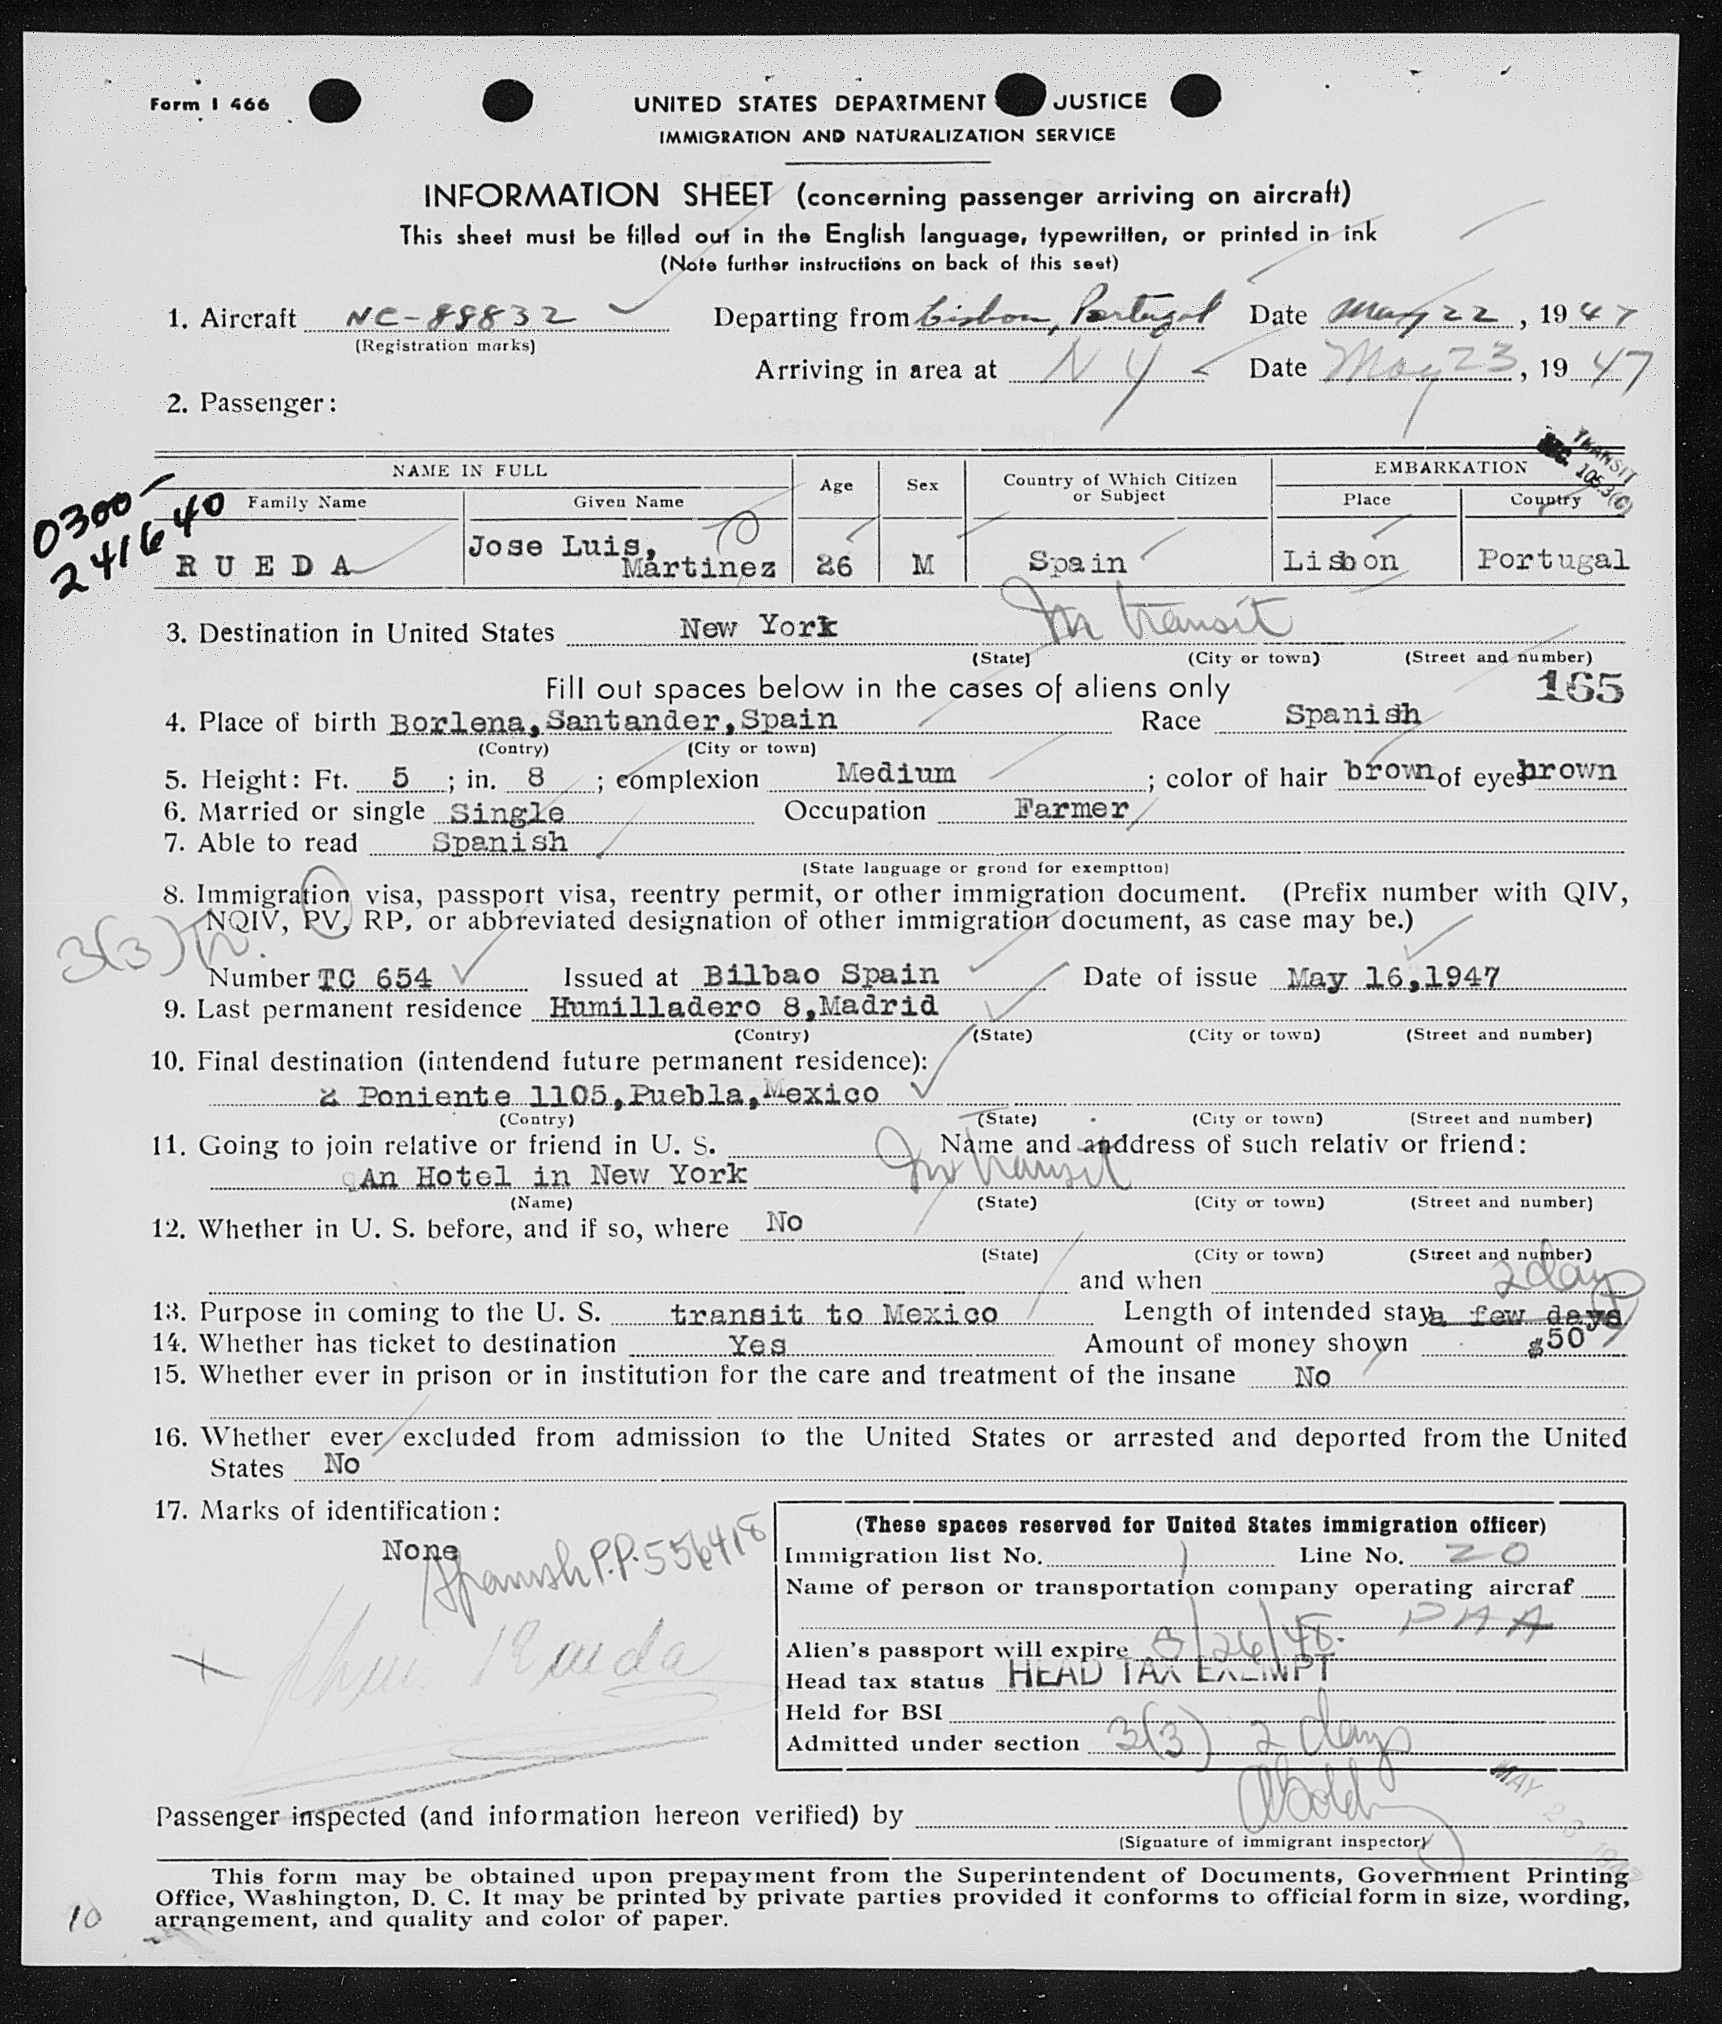 Form I 466
UNITED STATES DEPARTMENT JUSTICE
IMMIGRATION AND NATURALIZATION SERVICE
INFORMATION SHEET (concerning passenger arriving on aircraft)
This sheet must be filled out in the English language, typewritten, or printed in ink
(Note further instructions on back of this seet)
1. Aircraft NC-88832 Departing from Lisbon, Portugal Date May 22, 1947
(Registration marks)
Arriving in area at N Y Date May 23, 1947
2. Passenger:
TRANSIT
105.3(6)
NAME IN FULL Age Sex Country of Which Citizen or Subject EMBARKATION
Family Name Given Name Place Country
0300-
241640
RUEDA Jose Luis, Martinez 26 M Spain Lisbon Portugal
3. Destination in United States New York In transit
(State) (City or town) (Street and number)
Fill out spaces below in the cases of aliens only 165
4. Place of birth Borlena, Santander, Spain Race Spanish
(Contry) (City or town)
5. Height: Ft. 5; in. 8; complexion Medium; color of hair brown of eyes brown
6. Married or single Single Occupation Farmer
7. Able to read Spanish
(State language or grond for exemptton)
8. Immigration visa, passport visa, reentry permit, or other immigration document. (Prefix number with QIV,
NQIV, PV, RP, or abbreviated designation of other immigration document, as case may be.)
3(3) Tr.
Number TC 654 Issued at Bilbao Spain Date of issue May 16, 1947
9. Last permanent residence Humilladero 8, Madrid
(Contry) (State) (City or town) (Street and number)
10. Final destination (intendend future permanent residence):
2 Poniente 1105, Puebla, Mexico
(Contry) (State) (City or town) (Street and number)
11. Going to join relative or friend in U. S. Name and anddress of such relativ or friend:
An Hotel in New York In transit
(Name) (State) (City or town) (Street and number)
12. Whether in U. S. before, and if so, where No
(State) (City or town) (Street and number)
and when
2 days
13. Purpose in coming to the U. S. transit to Mexico Length of intended stay a few days
14. Whether has ticket to destination Yes Amount of money shown $50
15. Whether ever in prison or in institution for the care and treatment of the insane No
16. Whether ever excluded from admission to the United States or arrested and deported from the United
States No
17. Marks of identification:
None
Spanish P.P. 556418
(These spaces reserved for United States immigration officer)
Immigration list No. 1 Line No. 20
Name of person or transportation company operating aircraf
PAA
Alien's passport will expire 8/26/48.
Head tax status HEAD TAX EXEMPT
Held for BSI
Admitted under section 3(3) 2 days
x Rueda
MAY 23 1947
Passenger inspected (and information hereon verified) by
(Signature of immigrant inspector)
This form may be obtained upon prepayment from the Superintendent of Documents, Government Printing
Office, Washington, D. C. It may be printed by private parties provided it conforms to official form in size, wording,
arrangement, and quality and color of paper.
10